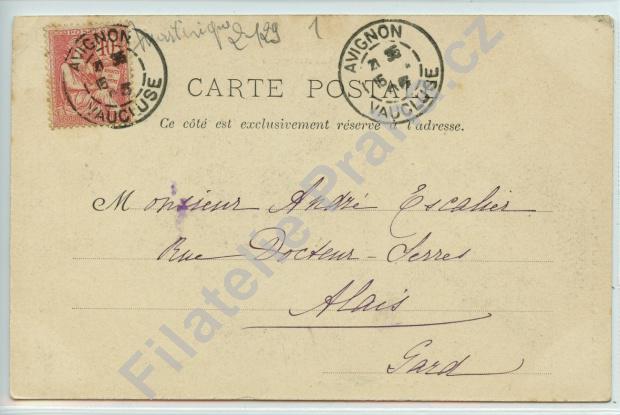 Martinique 2/29 1
AVIGNON
VAUCLUSE
AVIGNON
VAUCLUSE
CARTE POSTALE
Ce côté est exclusivement réservé à l'adresse.
Monsieur André Escalier
Rue Docteur-Serres
Alais
Gard
Filatelie-Praha.cz